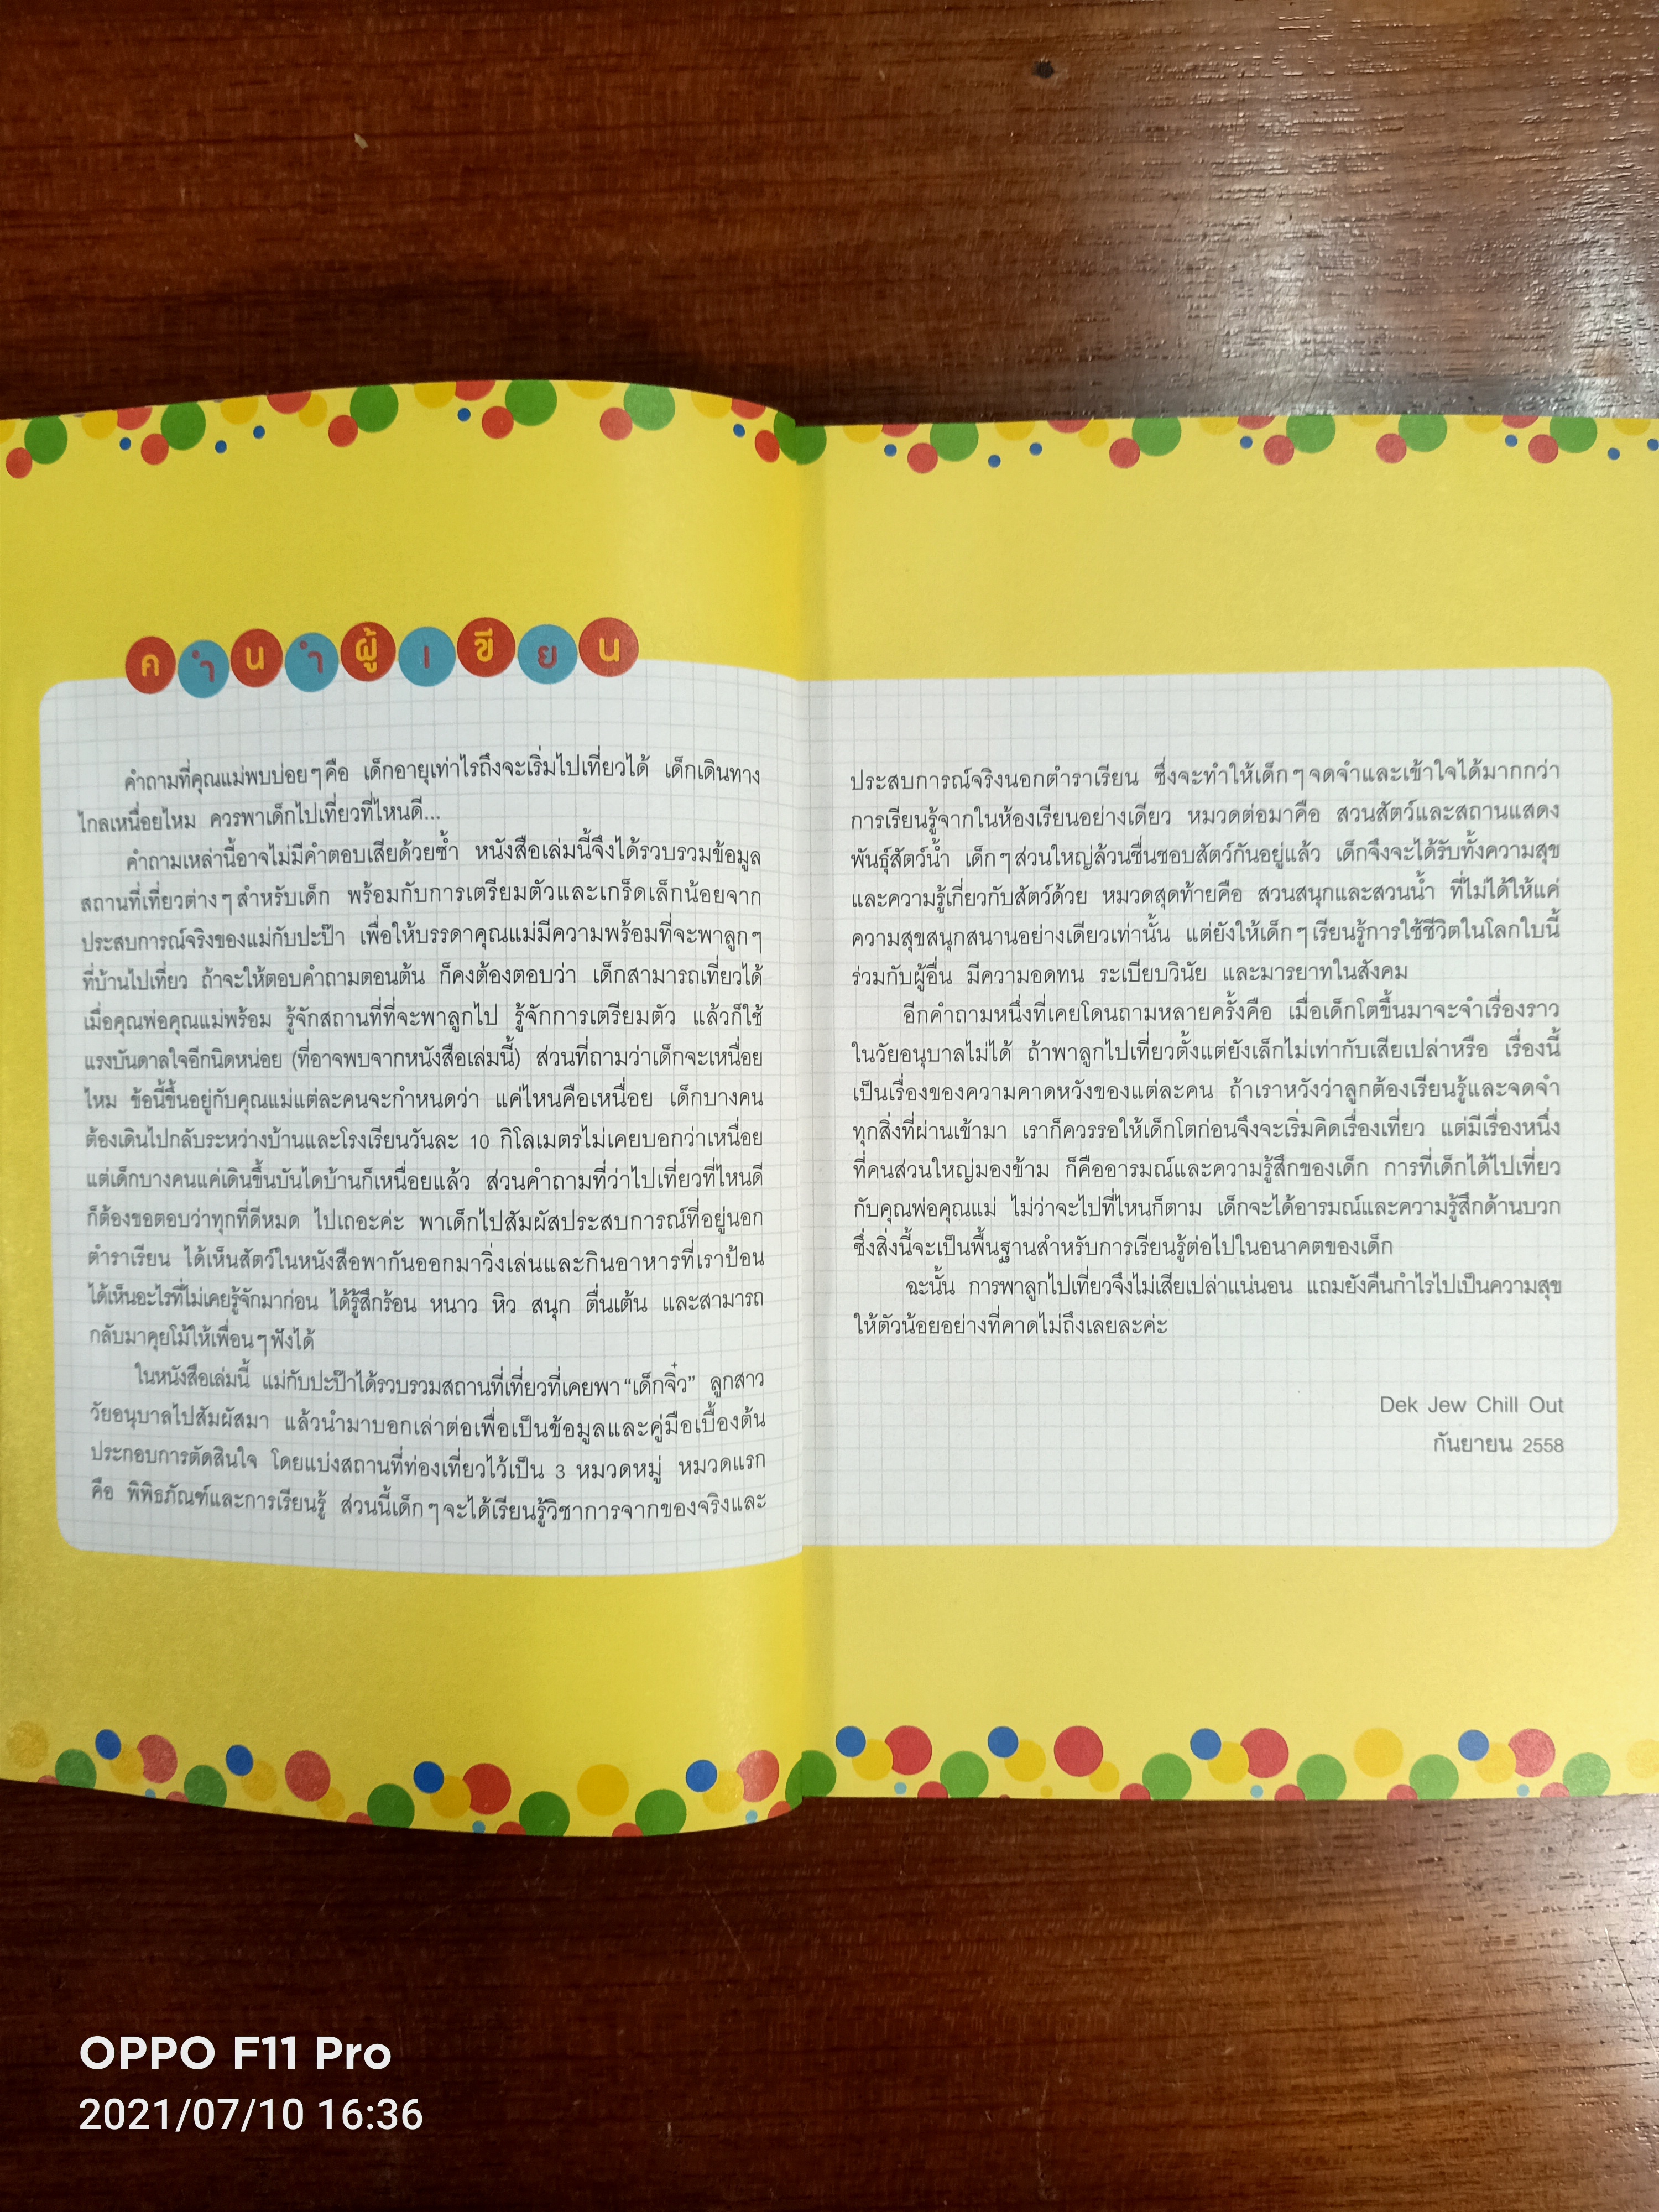 คำนำผู้เขียน
คำถามที่คุณแม่พบบ่อยๆคือ เด็กอายุเท่าไรถึงจะเริ่มไปเที่ยวได้ เด็กเดินทาง
ไกลเหนื่อยไหม ควรพาเด็กไปเที่ยวที่ไหนดี...
คำถามเหล่านี้อาจไม่มีคำตอบเสียด้วยซ้ำ หนังสือเล่มนี้จึงได้รวบรวมข้อมูล
สถานที่เที่ยวต่างๆสำหรับเด็ก พร้อมกับการเตรียมตัวและเกร็ดเล็กน้อยจาก
ประสบการณ์จริงของแม่กับปะป๊า เพื่อให้บรรดาคุณแม่มีความพร้อมที่จะพาลูกๆ
ที่บ้านไปเที่ยว ถ้าจะให้ตอบคำถามตอนต้น ก็คงต้องตอบว่า เด็กสามารถเที่ยวได้
เมื่อคุณพ่อคุณแม่พร้อม รู้จักสถานที่ที่จะพาลูกไป รู้จักการเตรียมตัว แล้วก็ใช้
แรงบันดาลใจอีกนิดหน่อย (ที่อาจพบจากหนังสือเล่มนี้) ส่วนที่ถามว่าเด็กจะเหนื่อย
ไหม ข้อนี้ขึ้นอยู่กับคุณแม่แต่ละคนจะกำหนดว่า แค่ไหนคือเหนื่อย เด็กบางคน
ต้องเดินไปกลับระหว่างบ้านและโรงเรียนวันละ 10 กิโลเมตรไม่เคยบอกว่าเหนื่อย
แต่เด็กบางคนแค่เดินขึ้นบันไดบ้านก็เหนื่อยแล้ว ส่วนคำถามที่ว่าไปเที่ยวที่ไหนดี
ก็ต้องขอตอบว่าทุกที่ดีหมด ไปเถอะค่ะ พาเด็กไปสัมผัสประสบการณ์ที่อยู่นอก
ตำราเรียน ได้เห็นสัตว์ในหนังสือพากันออกมาวิ่งเล่นและกินอาหารที่เราป้อน
ได้เห็นอะไรที่ไม่เคยรู้จักมาก่อน ได้รู้สึกร้อน หนาว หิว สนุก ตื่นเต้น และสามารถ
กลับมาคุยโม้ให้เพื่อนๆฟังได้
ในหนังสือเล่มนี้ แม่กับปะป๊าได้รวบรวมสถานที่เที่ยวที่เคยพา “เด็กจิ๋ว” ลูกสาว
วัยอนุบาลไปสัมผัสมา แล้วนำมาบอกเล่าต่อเพื่อเป็นข้อมูลและคู่มือเบื้องต้น
ประกอบการตัดสินใจ โดยแบ่งสถานที่ท่องเที่ยวไว้เป็น 3 หมวดหมู่ หมวดแรก
คือ พิพิธภัณฑ์และการเรียนรู้ ส่วนนี้เด็กๆจะได้เรียนรู้วิชาการจากของจริงและ
ประสบการณ์จริงนอกตำราเรียน ซึ่งจะทำให้เด็กๆจดจำและเข้าใจได้มากกว่า
การเรียนรู้จากในห้องเรียนอย่างเดียว หมวดต่อมาคือ สวนสัตว์และสถานแสดง
พันธุ์สัตว์น้ำ เด็กๆส่วนใหญ่ล้วนชื่นชอบสัตว์กันอยู่แล้ว เด็กจึงจะได้รับทั้งความสุข
และความรู้เกี่ยวกับสัตว์ด้วย หมวดสุดท้ายคือ สวนสนุกและสวนน้ำ ที่ไม่ได้ให้แค่
ความสุขสนุกสนานอย่างเดียวเท่านั้น แต่ยังให้เด็กๆเรียนรู้การใช้ชีวิตในโลกใบนี้
ร่วมกับผู้อื่น มีความอดทน ระเบียบวินัย และมารยาทในสังคม
อีกคำถามหนึ่งที่เคยโดนถามหลายครั้งคือ เมื่อเด็กโตขึ้นมาจะจำเรื่องราว
ในวัยอนุบาลไม่ได้ ถ้าพาลูกไปเที่ยวตั้งแต่ยังเล็กไม่เท่ากับเสียเปล่าหรือ เรื่องนี้
เป็นเรื่องของความคาดหวังของแต่ละคน ถ้าเราหวังว่าลูกต้องเรียนรู้และจดจำ
ทุกสิ่งที่ผ่านเข้ามา เราก็ควรรอให้เด็กโตก่อนจึงจะเริ่มคิดเรื่องเที่ยว แต่มีเรื่องหนึ่ง
ที่คนส่วนใหญ่มองข้าม ก็คืออารมณ์และความรู้สึกของเด็ก การที่เด็กได้ไปเที่ยว
กับคุณพ่อคุณแม่ ไม่ว่าจะไปที่ไหนก็ตาม เด็กจะได้อารมณ์และความรู้สึกด้านบวก
ซึ่งสิ่งนี้จะเป็นพื้นฐานสำหรับการเรียนรู้ต่อไปในอนาคตของเด็ก
ฉะนั้น การพาลูกไปเที่ยวจึงไม่เสียเปล่าแน่นอน แถมยังคืนกำไรไปเป็นความสุข
ให้ตัวน้อยอย่างที่คาดไม่ถึงเลยละค่ะ
Dek Jew Chill Out
กันยายน 2558
OPPO F11 Pro
2021/07/10 16:36